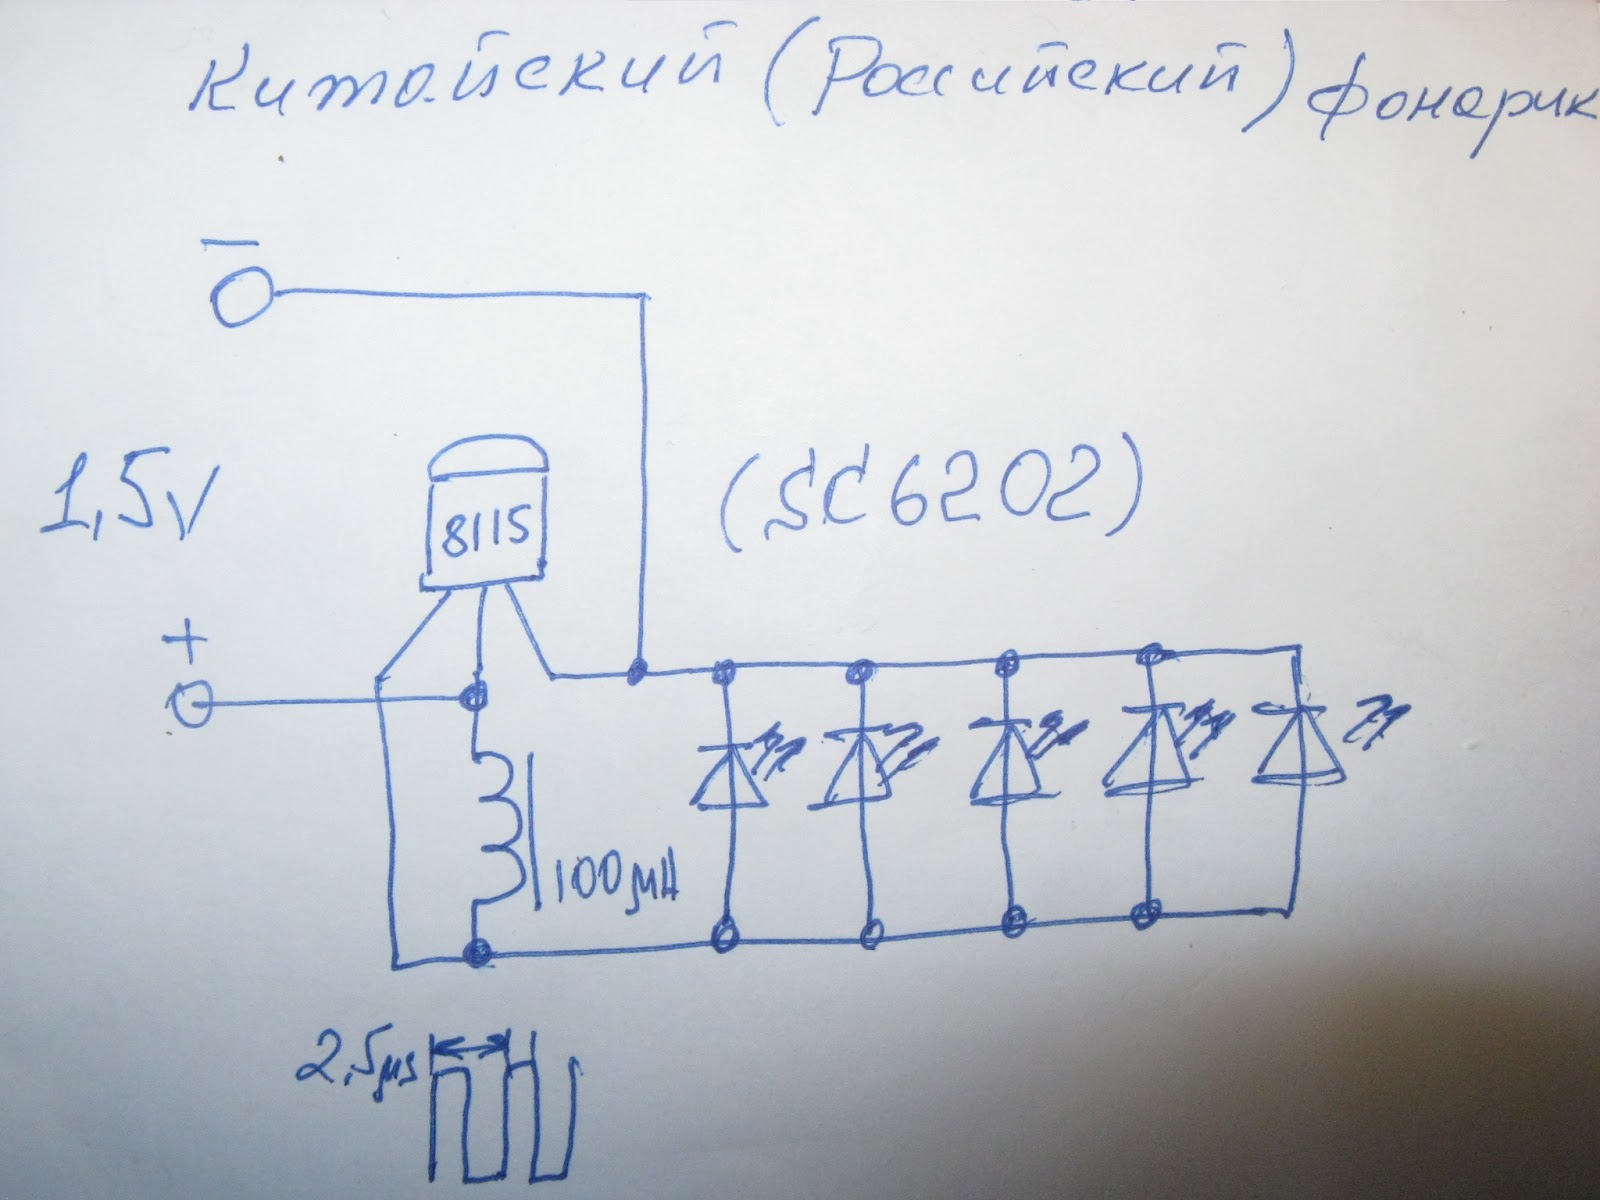 Китайский (Российский) фонарик
−
1,5V
8115
(SC6202)
+
100μH
2,5μs